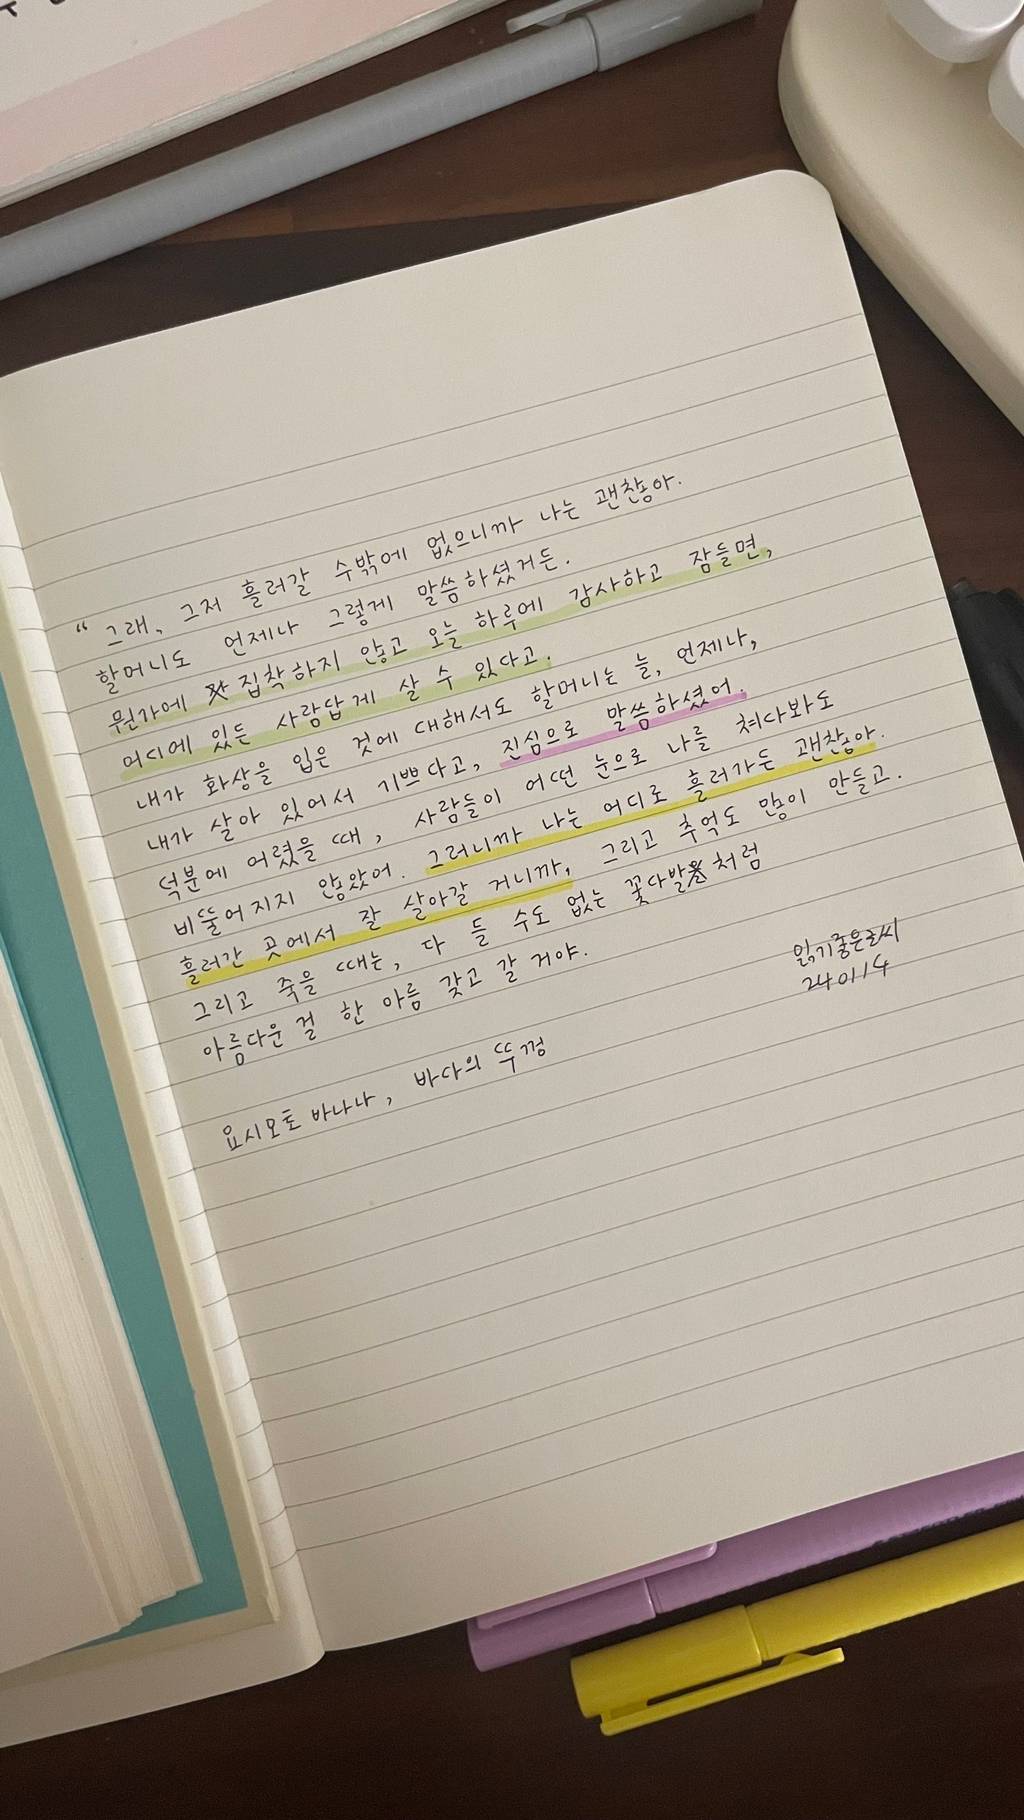 “ 그래, 그저 흘러갈 수밖에 없으니까 나는 괜찮아.
할머니도 언제나 그렇게 말씀하셨거든.
뭔가에 집착하지 않고 오늘 하루에 감사하고 잠들면,
어디에 있든 사람답게 살 수 있다고.
내가 화상을 입은 것에 대해서도 할머니는 늘, 언제나,
내가 살아 있어서 기쁘다고, 진심으로 말씀하셨어.
덕분에 어렸을 때, 사람들이 어떤 눈으로 나를 쳐다봐도
비뚤어지지 않았어. 그러니까 나는 어디로 흘러가든 괜찮아.
흘러간 곳에서 잘 살아갈 거니까, 그리고 추억도 많이 만들고.
그리고 죽을 때는, 다 들 수도 없는 꽃다발처럼
아름다운 걸 한 아름 갖고 갈 거야.
읽기좋은글씨
240114
요시모토 바나나, 바다의 뚜껑